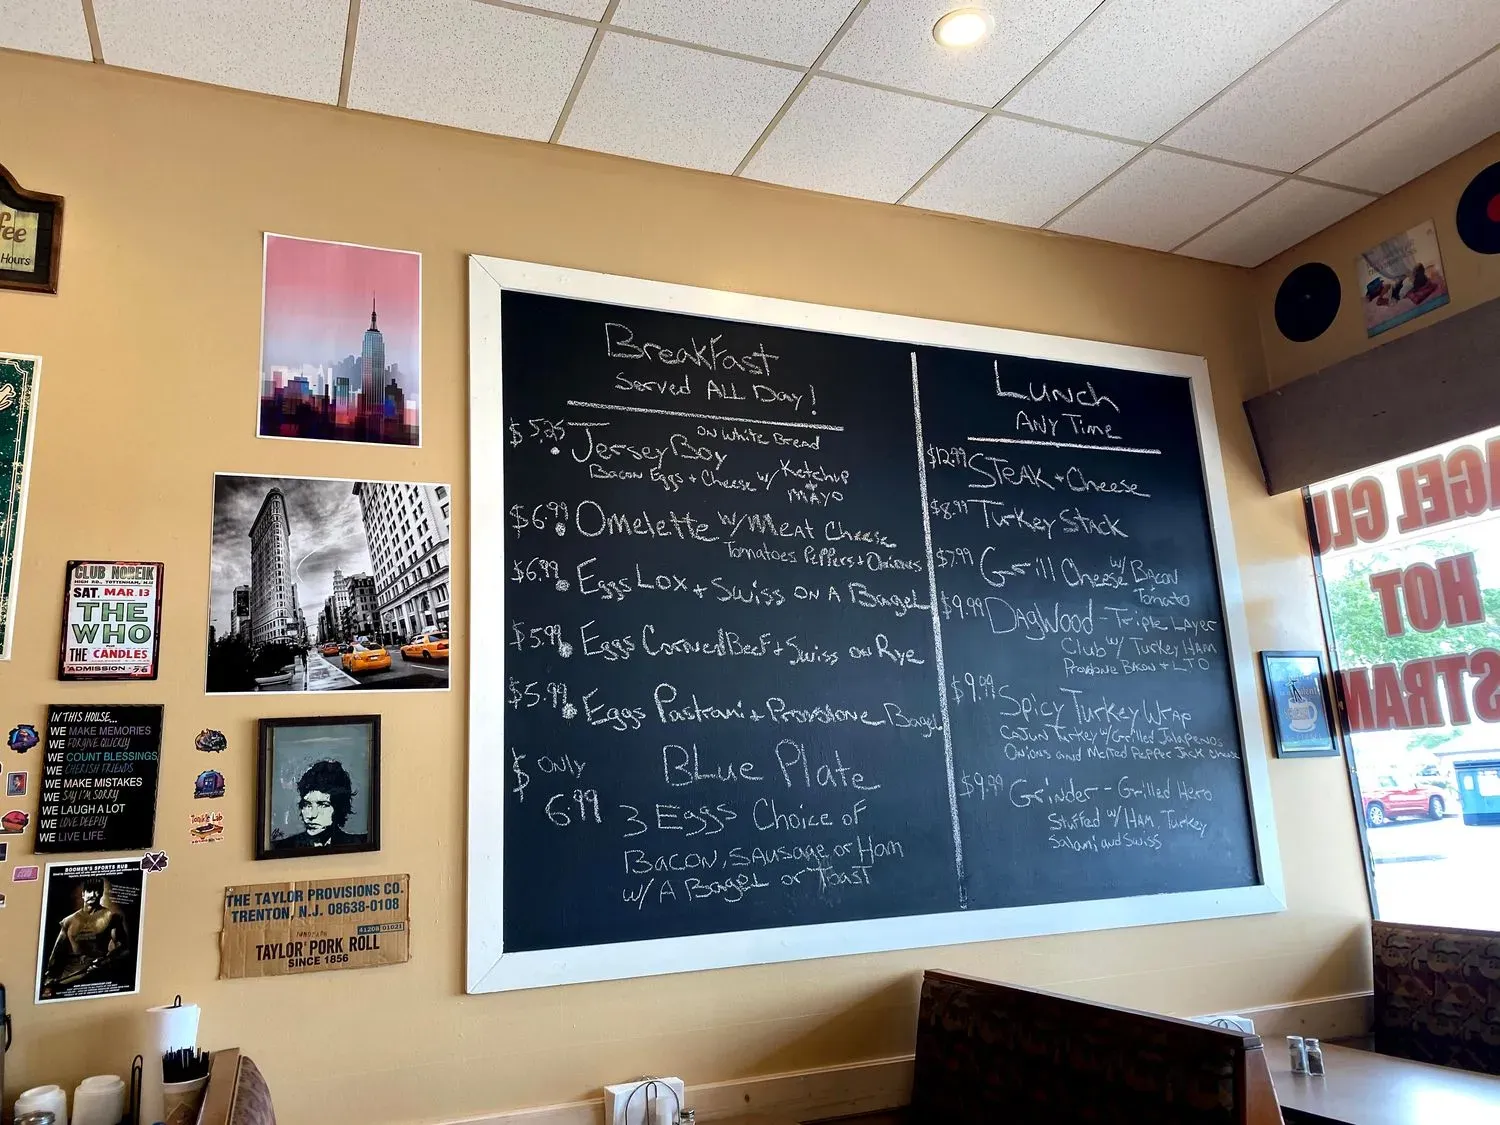 fee
Hours
CLUB NOREIK
HIGH RD., TOTTENHAM, N.15
SAT. MAR. 13
THE
WHO
THE CANDLES
ADMISSION
IN THIS HOUSE...
WE MAKE MEMORIES
WE FORGIVE QUICKLY
WE COUNT BLESSINGS
WE CHERISH FRIENDS
WE MAKE MISTAKES
WE SAY I'M SORRY
WE LAUGH A LOT
WE LOVE DEEPLY
WE LIVE LIFE.
BOOMER'S SPORTS RUB
THE TAYLOR PROVISIONS CO.
TRENTON, N.J. 08638-0108
41208 01021
TAYLOR PORK ROLL
SINCE 1856
Breakfast
Served ALL Day!
$5.25 Jersey Boy on White Bread
Bacon Eggs + Cheese w/ Ketchup
+ Mayo
$6.99 Omelette w/ Meat Cheese
Tomatoes Peppers + Onions
$6.99 Eggs Lox + Swiss on A Bagel
$5.99 Eggs Corned Beef + Swiss on Rye
$5.99 Eggs Pastrami + Provolone Bagel
$ only
6.99
Blue Plate
3 Eggs Choice of
Bacon, Sausage or Ham
w/ A Bagel or Toast
Lunch
Any Time
$12.99 Steak + Cheese
$8.99 Turkey Stack
$7.99 Grill Cheese w/ Bacon
Tomato
$9.99 Dagwood - Triple Layer
Club w/ Turkey Ham
Provolone Bacon + LTO
$9.99 Spicy Turkey Wrap
Cajun Turkey w/ Grilled Jalapenos
Onions and Melted Pepper Jack Cheese
$9.99 Grinder - Grilled Hero
Stuffed w/ Ham, Turkey
Salami and Swiss
AGEL CLU
HOT
STRAM